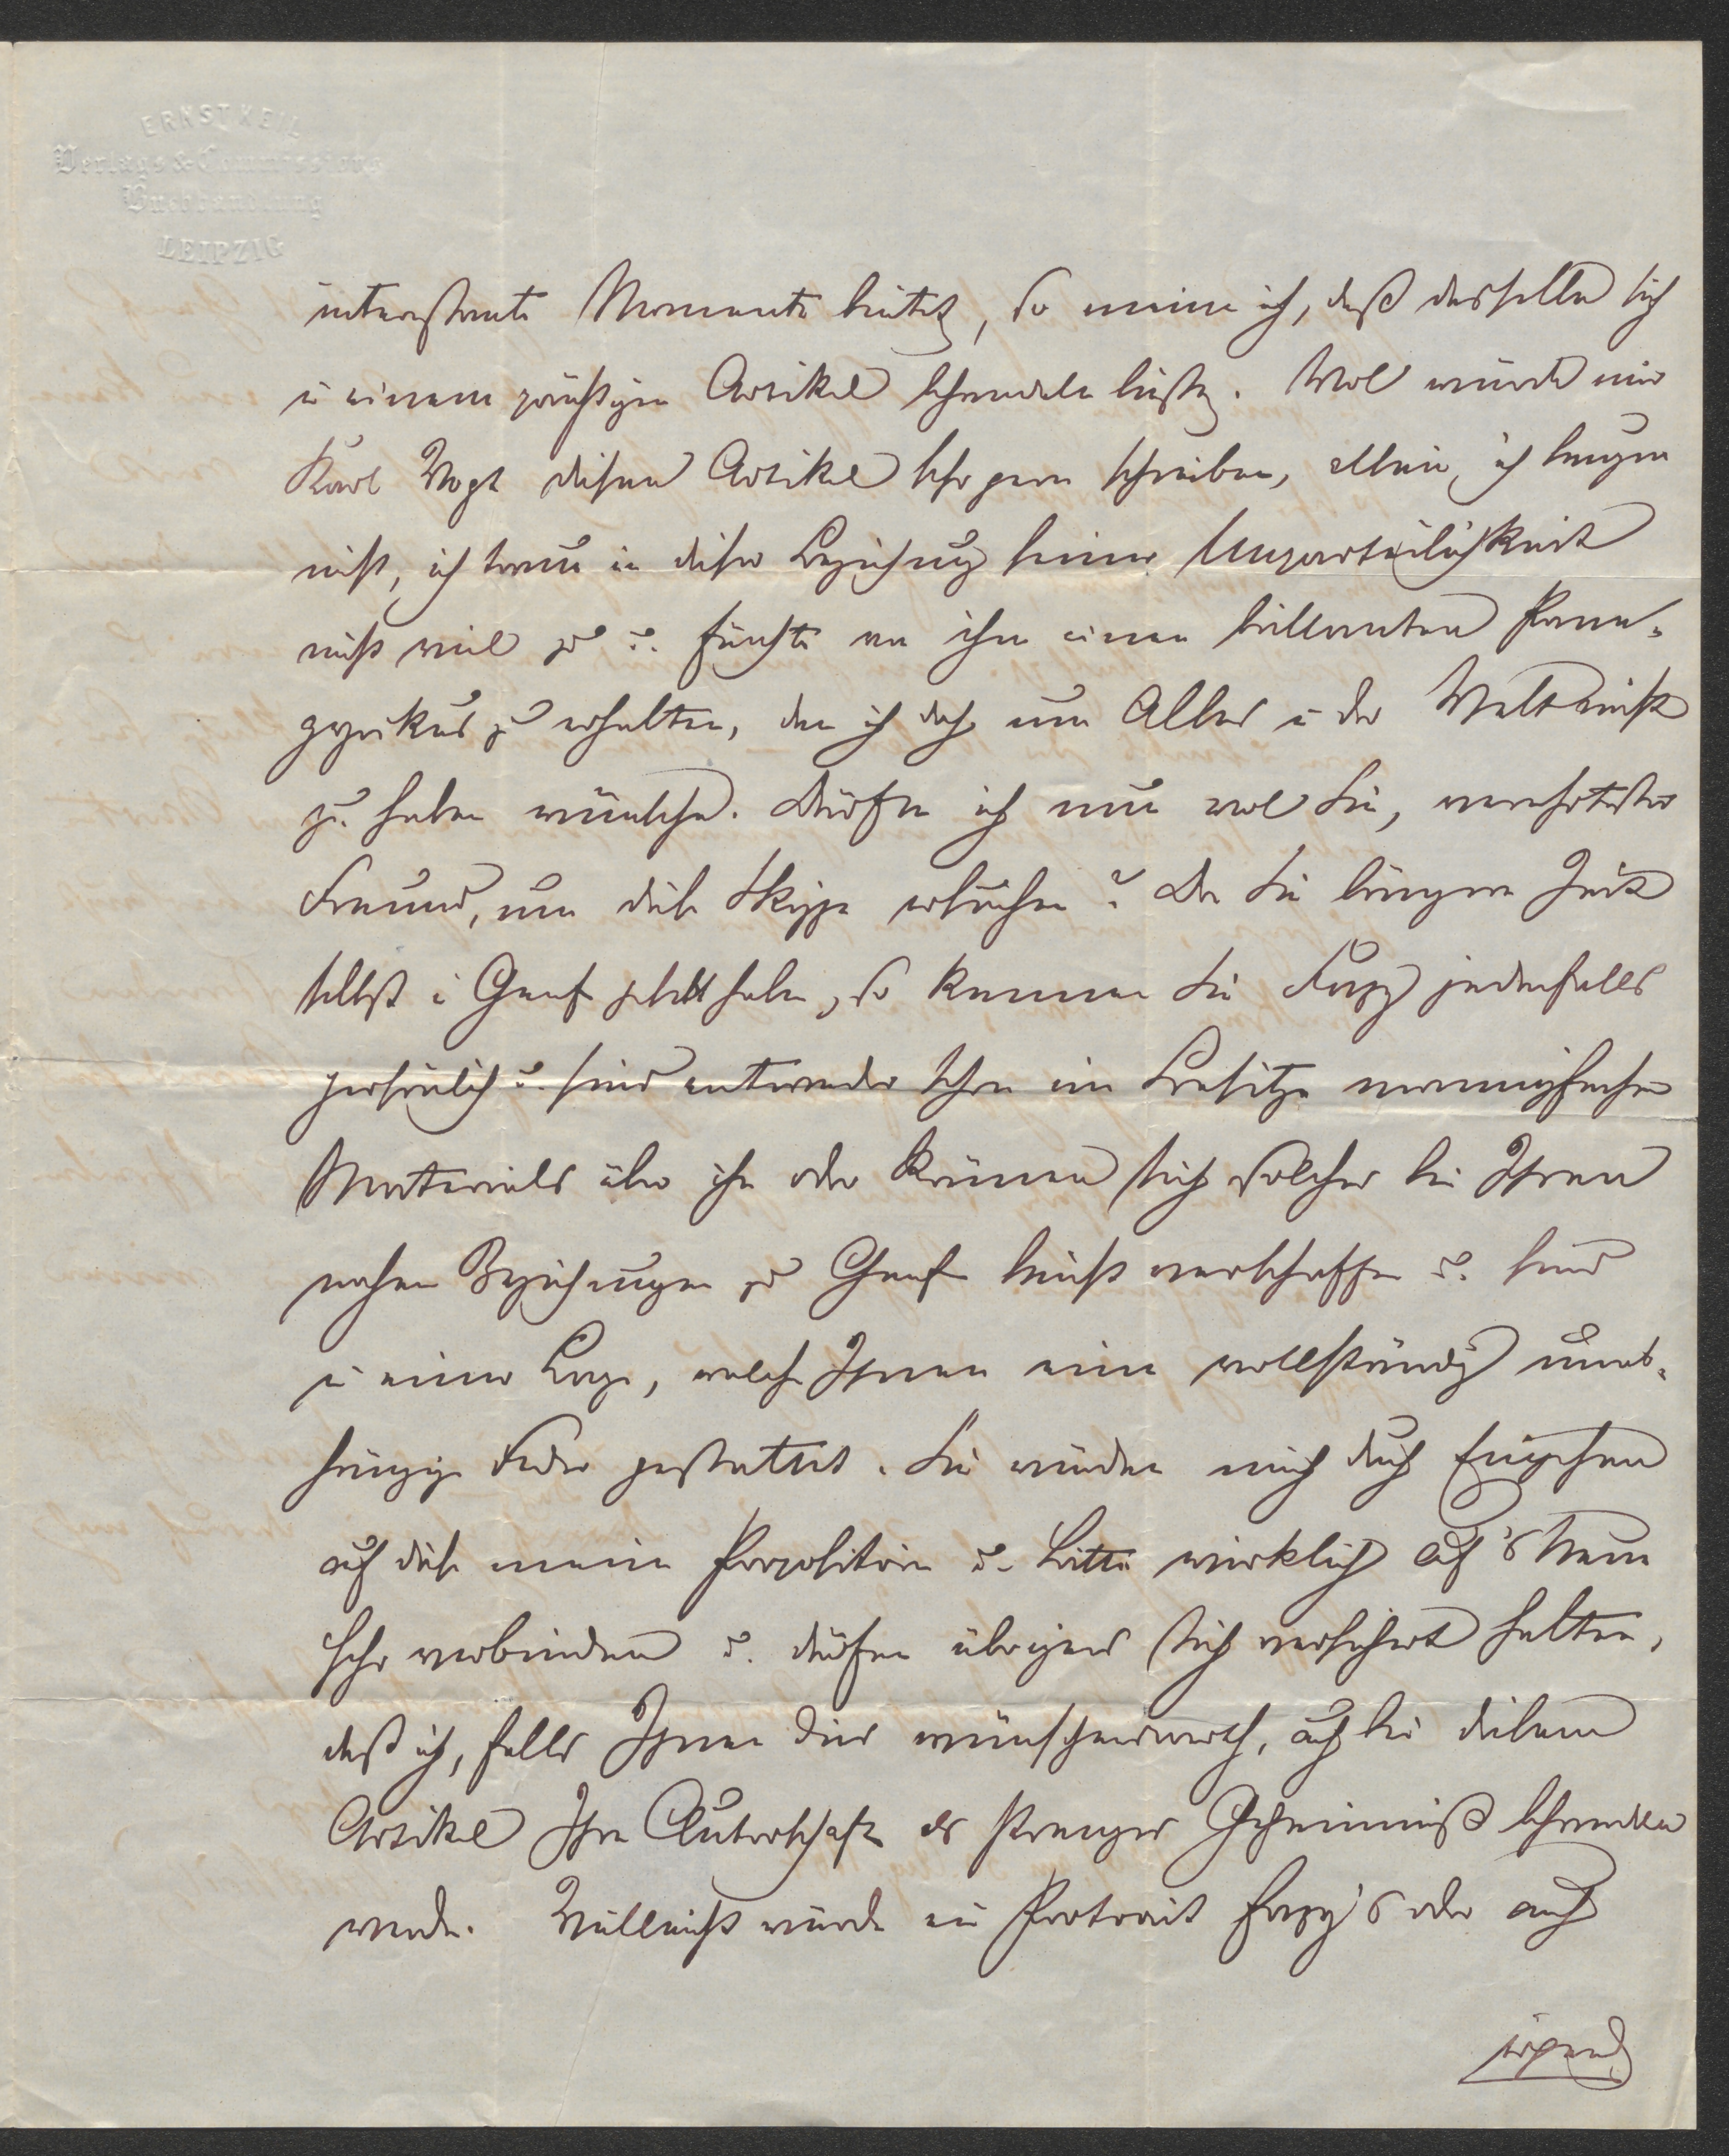 ERNST KEIL
Verlags & Commissions
Buchhandlung
LEIPZIG
interessante Momente bietet, so meine ich, daß derselbe sich
in einem präch­tigen Artikel behandeln ließe. Wol würde mir
Karl Vogt diesen Artikel sehr gern schreiben, allein, ich leugne
nicht, ich traue in dieser Beziehung seiner Unparteilichkeit
nicht viel zu u. fürchte von ihm einen brillanten Pane-
gyrikus zu erhalten, den ich doch um Alles in der Welt nicht
zu haben wünsche. Dürfte ich nun wol Sie, verehrtester
Freund, um diese Skizze ersuchen? Da Sie längere Zeit
selbst in Genf gelebt haben, so kennen Sie Fazy jedenfalls
persönlich u. sind entweder schon im Besitze mannigfachen
Materials über ihn oder können sich solches bei Ihren
nahen Beziehungen zu Genf leicht verschaffen u. sind
in einer Lage, welche Ihnen eine vollständig unab-
hängige Feder gestattet. Sie würden mich durch Eingehen
auf diese meine Proposition u. Bitte wirklich auf's Neue
sehr verbinden u. dürfen übrigens sich versichert halten,
daß ich, falls Ihnen dies wünschenswerth, auch bei diesem
Artikel Ihre Autorschaft als strenges Geheimniß behandeln
werde. Vielleicht würde ein Portrait Fazy's oder auch
irgend